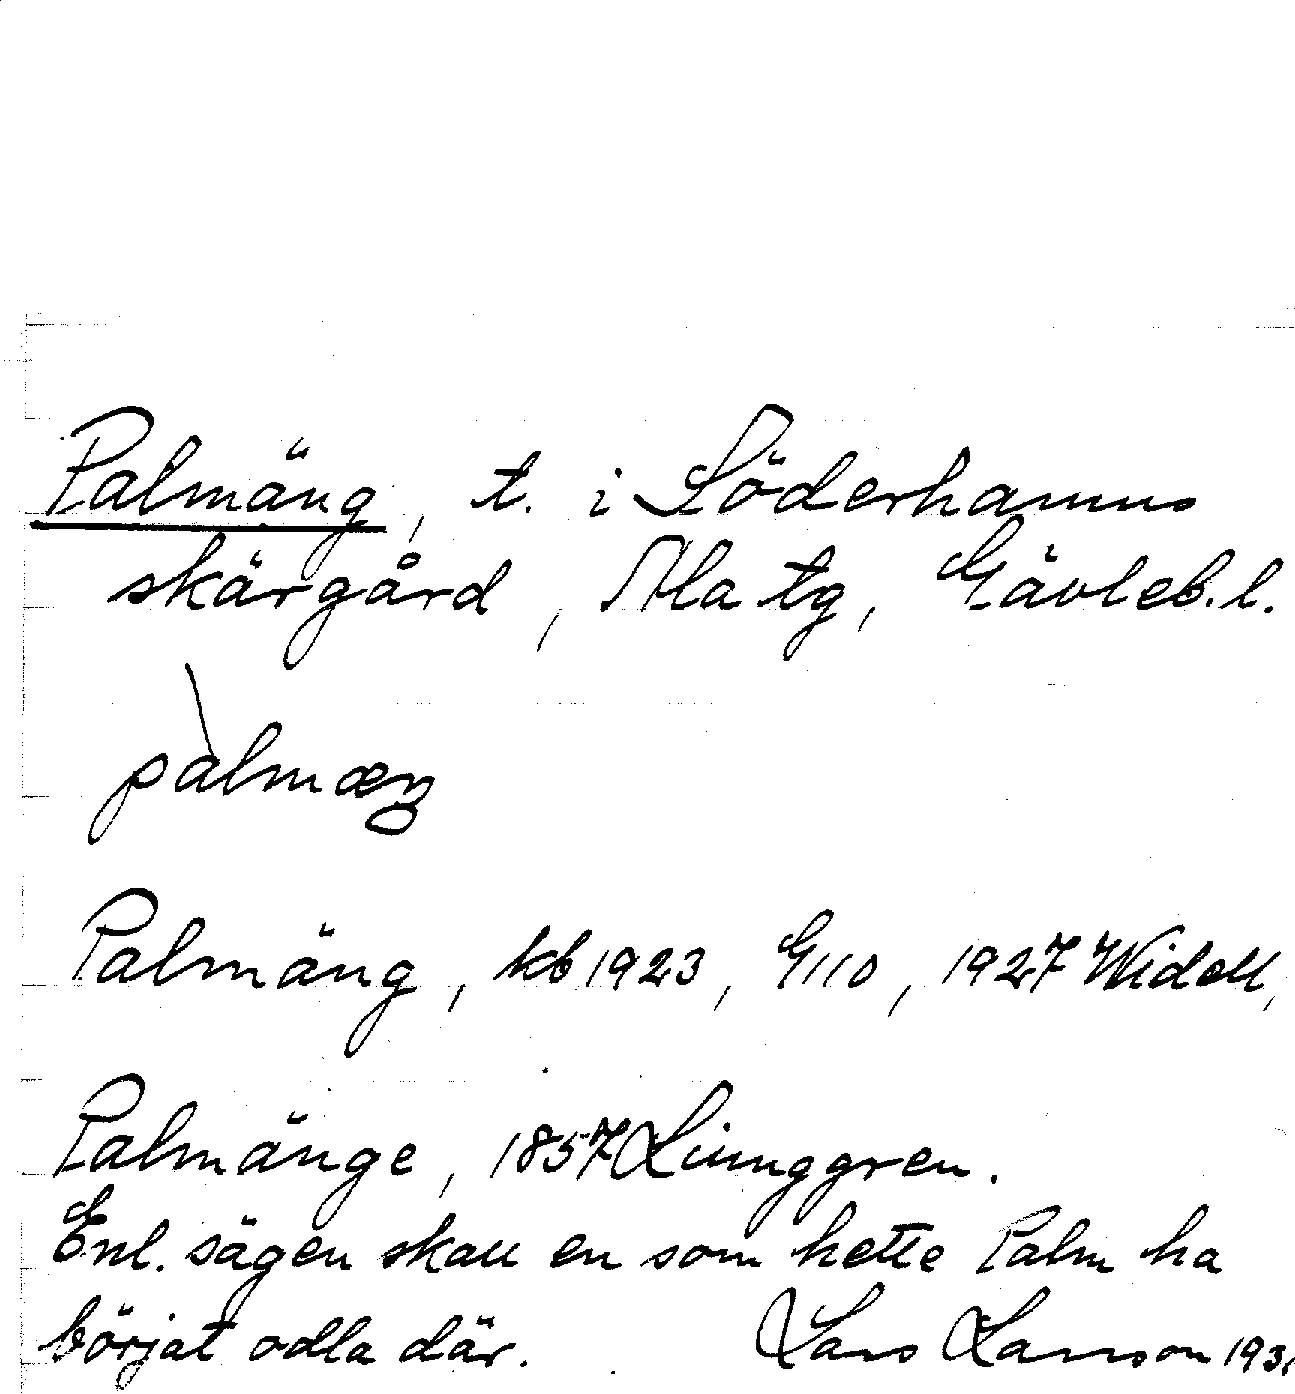 Palmäng, t. i Söderhamns
skärgård, Ala tg, Gävleb. l.
pàlmæŋ
Palmäng, kb 1923, G110, 1927 Widell,
Palmänge, 1857 Ljunggren.
Enl. sägen skall en som hette Palm ha
börjat odla där. Lars Larsson